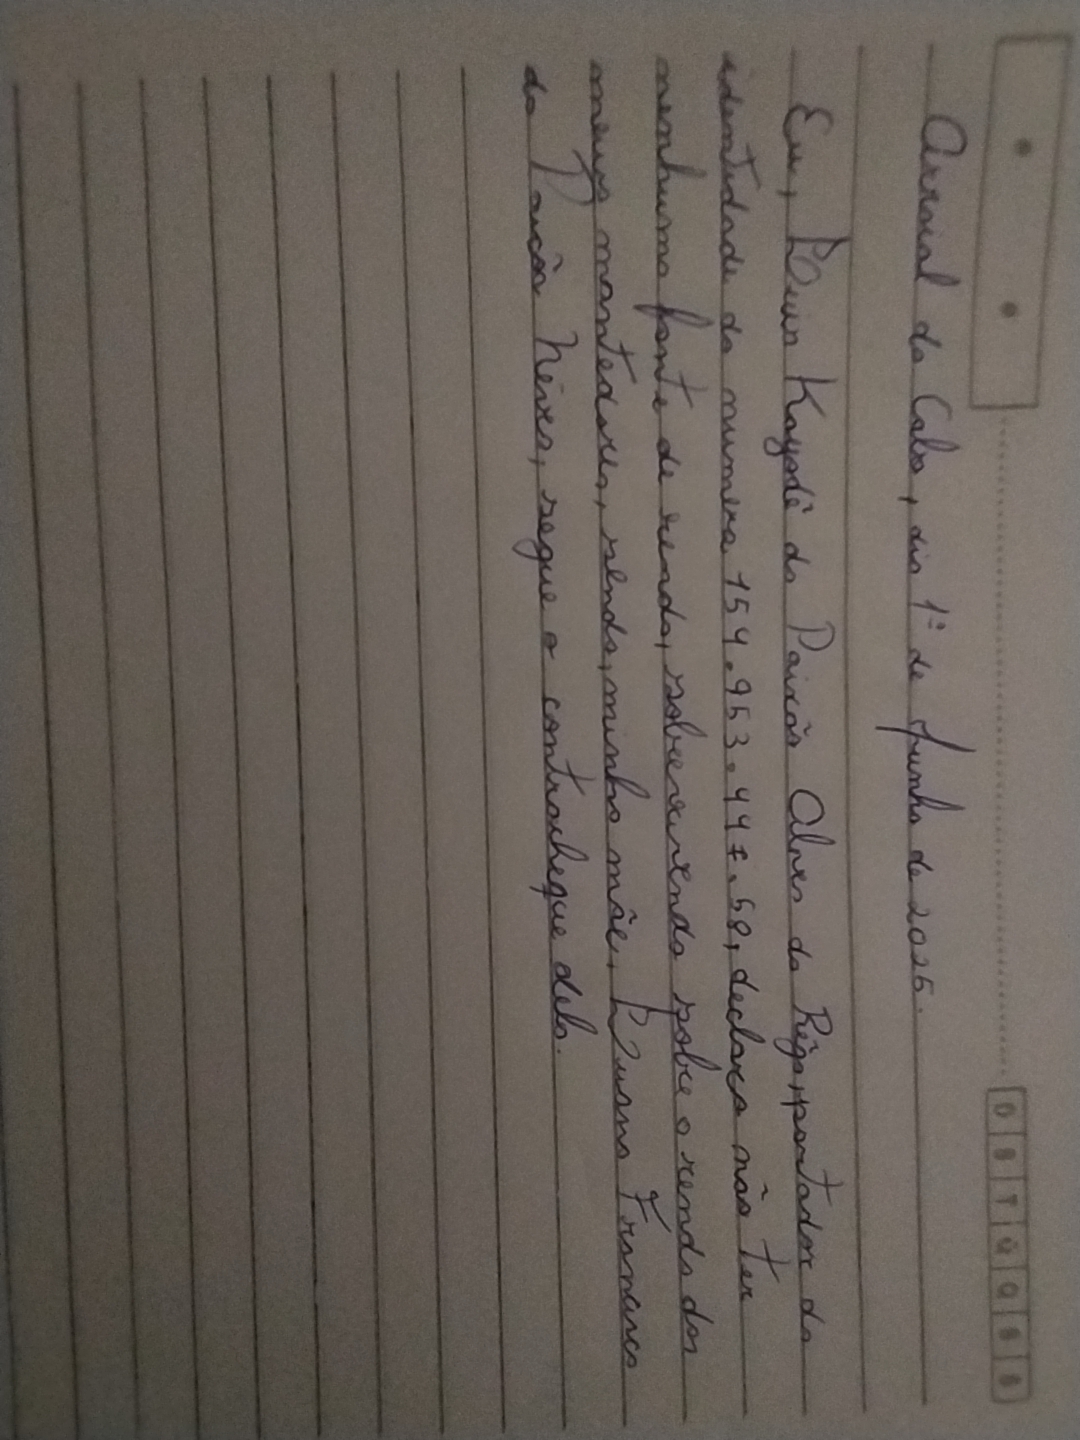 D S T Q Q S S
Arraial do Cabo, dia 1º de junho de 2025.
Eu, Kayodê da Paixão Alves do Rêgo, portador da
identidade do numero 154.953.447.58, declaro não ter
nenhuma fonte de renda, sobrevivendo sobre a renda dos
meus mantedores, sendo, minha mãe, Luana Francisca
da Paixão Neves, segue o contracheque dela.